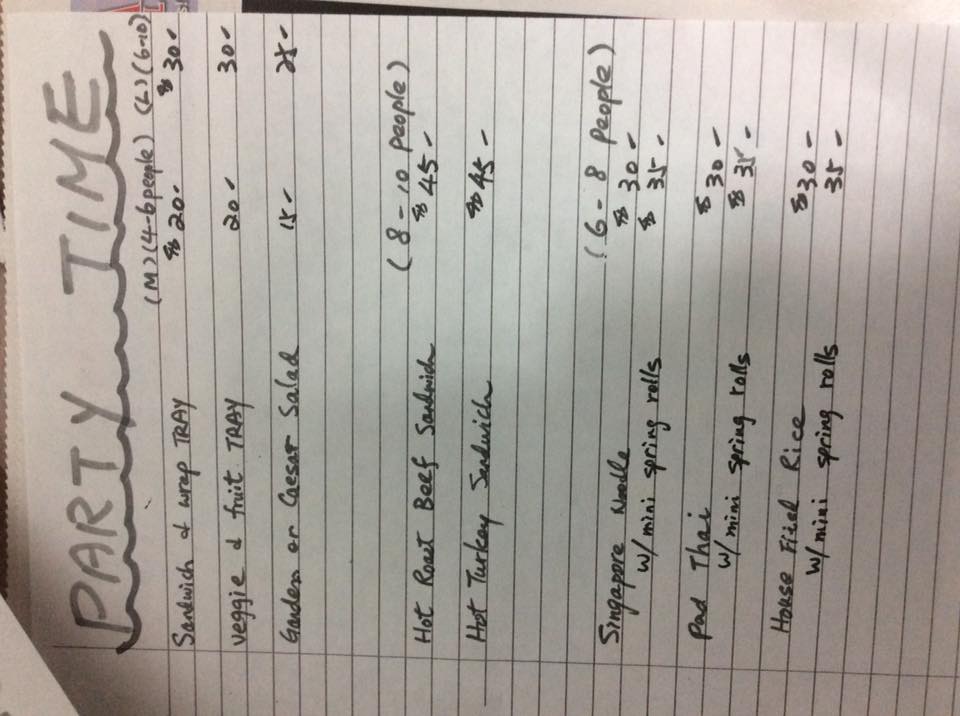 PARTY TIME
(M)(4-6 people) (L)(6-10)
Sandwich & wrap TRAY $20- $30-
Veggie & fruit TRAY 20- 30-
Garden or Caesar Salad 15- 25-
(8-10 people)
Hot Roast Beef Sandwich $45-
Hot Turkey Sandwich $45-
(6-8 people)
Singapore Noodle $30-
w/mini spring rolls $35-
Pad Thai $30-
w/mini spring rolls $35-
House Fried Rice $30-
w/mini spring rolls 35-